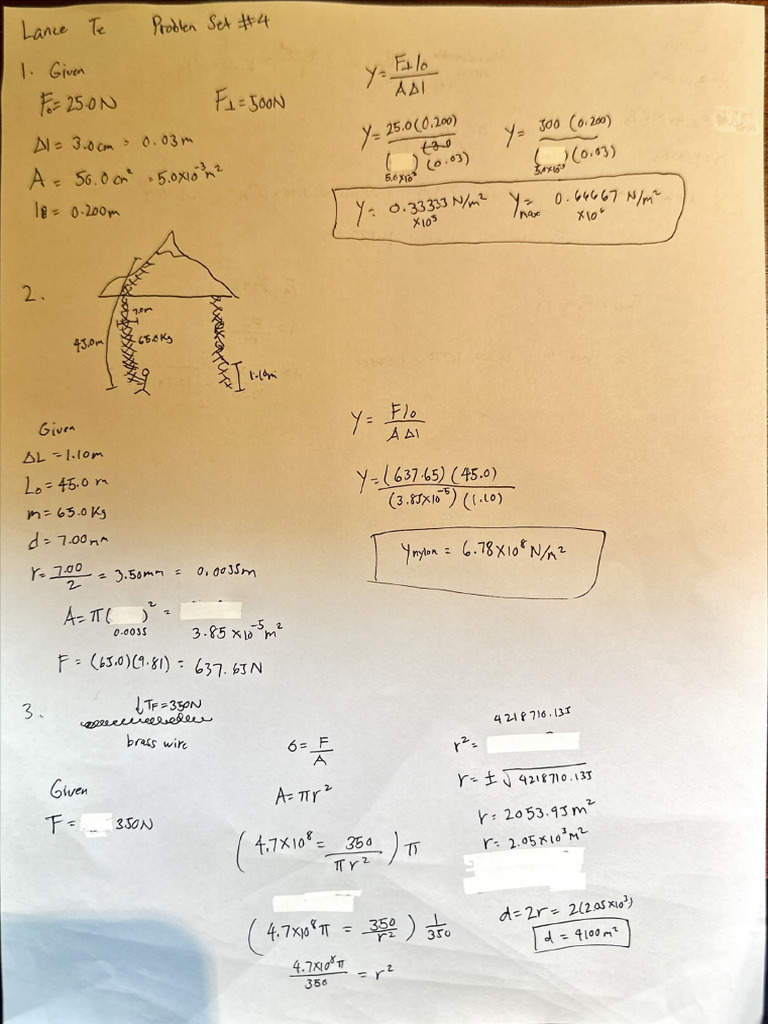 Lance Te Problem Set #4
1. Given
F₀= 25.0N F⊥ = 500N
Δl = 3.0cm = 0.03m
A = 50.0 cm² = 5.0x10⁻³m²
l₀ = 0.200m
Y = F⊥l₀ / AΔl
Y = 25.0(0.200) / (5.0x10⁻³)(0.03) Y = 500 (0.200) / (5.0x10⁻³)(0.03)
Y = 0.33333 N/m² x10⁵ Ymax = 0.66667 N/m² x10⁶
2.
7.0m
45.0m 65.0kg
1.10m
Given
ΔL = 1.10m
L₀ = 45.0 m
m = 65.0 Kg
d = 7.00mm
r = 7.00/2 = 3.50mm = 0.0035m
A = π(0.0035)² = 3.85 x10⁻⁵m²
F = (65.0)(9.81) = 637.65N
Y = Fl₀ / AΔl
Y = (637.65)(45.0) / (3.85x10⁻⁵)(1.10)
Ynylon = 6.78x10⁸ N/m²
3.
↓TF = 350N
brass wire
Given
F = 350N
σ = F/A
A = πr²
(4.7x10⁸ = 350/πr²) π
(4.7x10⁸π = 350/r²) 1/350
4.7x10⁸π/350 = r²
4218710.135
r² =
r = ±√4218710.135
r = 2053.95m²
r = 2.05x10³m²
d = 2r = 2(2.05x10³)
d = 4100m²